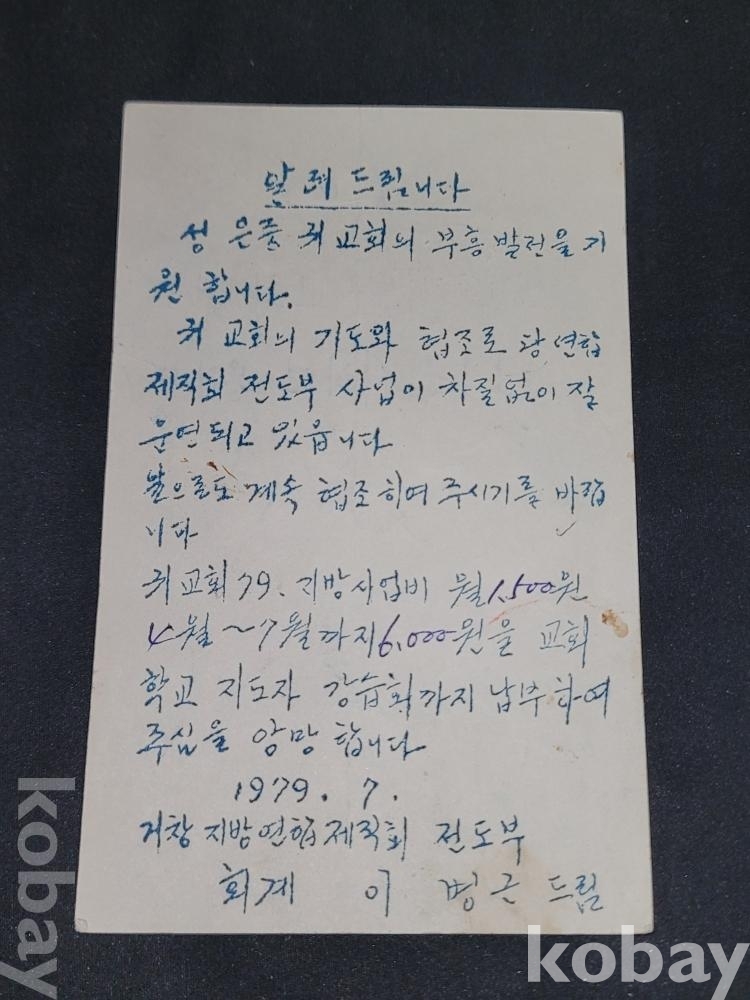 알려 드립니다
성 은중 귀 교회의 부흥발전을 기
원 합니다.
귀 교회의 기도와 협조로 당 연합
제직회 전도부 사업이 차질없이 잘
운영되고 있읍니다
앞으로도 계속 협조하여 주시기를 바랍
니다
귀 교회 79. 지방사업비 월 1,500원
4월~7월까지 6,000원을 교회
학교 지도자 강습회까지 납부하여
주심을 앙망 합니다
1979. 7.
거창 지방연합제직회 전도부
회계 이 병근 드림
kobay
kobay